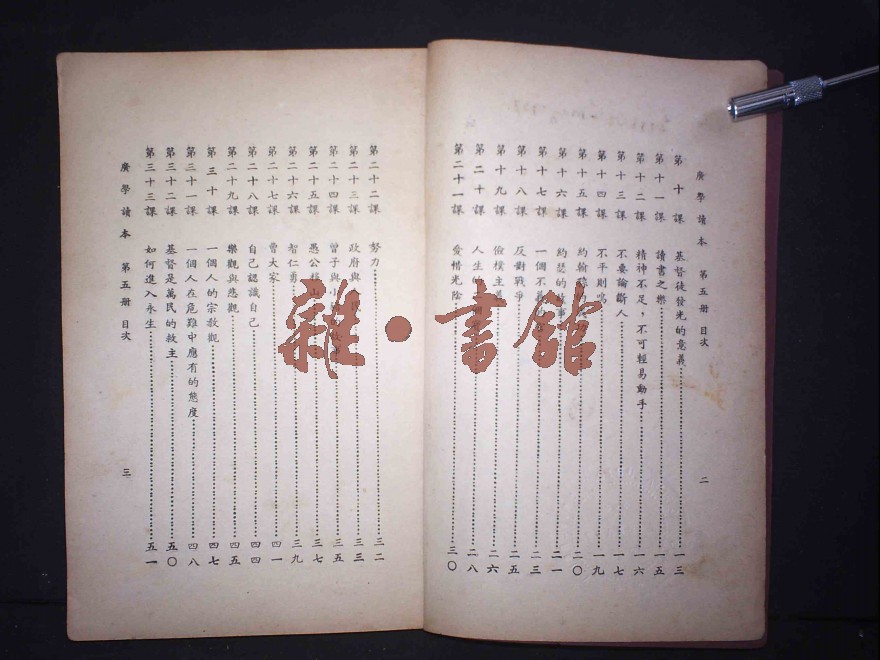 廣學讀本 第五册 目次 二
第十課 基督徒發光的意義 一三
第十一課 讀書之樂 一五
第十二課 精神不足，不可輕易動手 一六
第十三課 不要論斷人 一七
第十四課 不平則鳴 一九
第十五課 約翰 二〇
第十六課 約瑟的故事 二一
第十七課 一個不義的 二三
第十八課 反對戰爭 二五
第十九課 儉樸主義 二六
第二十課 人生的 二八
第二十一課 愛惜光陰 三〇
第二十二課 努力 三二
第二十三課 政府與 民 三三
第二十四課 曾子與小 三五
第二十五課 愚公移山 三七
第二十六課 智仁勇 三九
第二十七課 曹大家 四一
第二十八課 自己認識自己 四四
第二十九課 樂觀與悲觀 四五
第三十課 一個人的宗教觀 四七
第三十一課 一個人在危難中應有的態度 四八
第三十二課 基督是萬民的救主 五〇
第三十三課 如何進入永生 五一
廣學讀本 第五册 目次 三
雜·書館